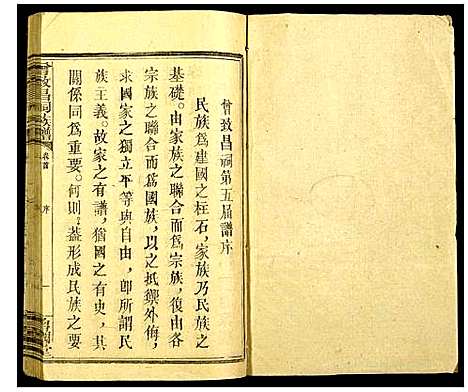 曾致昌祠第五届譜序
民族爲建國之柱石，家族乃民族之
基礎。由家族之聯合而爲宗族，復由各
宗族之聯合而爲國族，以之抵禦外侮，
求國家之獨立平等與自由，卽所謂民
族主義。故家之有譜，猶國之有史，其
關係同爲重要。何則？蓋形成民族之要
曾致昌祠族譜
卷首
序
一